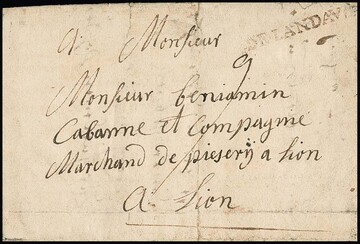 DE LANDAV
A Monsieur
9
Monsieur beniamin
Cabanne et Compagnie
Marchand de pieserij a Lion
A Lion